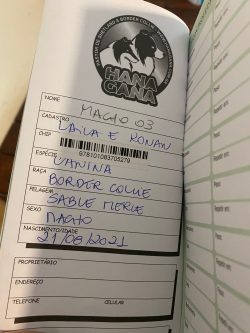 HANA
GANA
NOME
MACHO 03
CADASTRO
LAILA E KONAN
CHIP
978101083705279
ESPÉCIE
CANINA
RAÇA
BORDER COLLIE
PELAGEM
SABLE MERLE
SEXO
MACHO
NASCIMENTO/IDADE
21/08/2021
PROPRIETÁRIO
ENDEREÇO
TELEFONE CELULAR